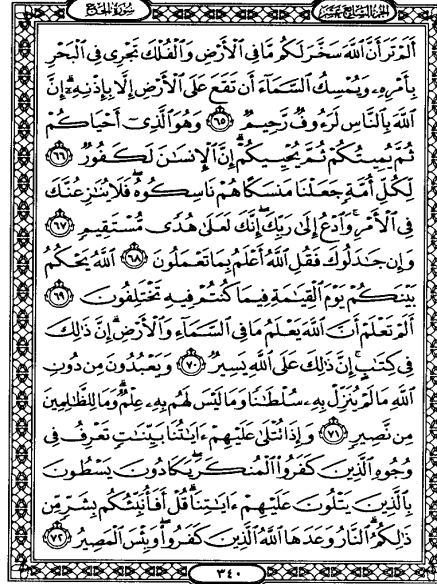 سُورَةُ الحَجِّ
الجُزءُ السَّابِعَ عَشَرَ
أَلَمْ تَرَ أَنَّ ٱللَّهَ سَخَّرَ لَكُم مَّا فِى ٱلْأَرْضِ وَٱلْفُلْكَ تَجْرِى فِى ٱلْبَحْرِ
بِأَمْرِهِۦ وَيُمْسِكُ ٱلسَّمَآءَ أَن تَقَعَ عَلَى ٱلْأَرْضِ إِلَّا بِإِذْنِهِۦٓ ۗ إِنَّ
ٱللَّهَ بِٱلنَّاسِ لَرَءُوفٌ رَّحِيمٌ ٦٥ وَهُوَ ٱلَّذِىٓ أَحْيَاكُمْ
ثُمَّ يُمِيتُكُمْ ثُمَّ يُحْيِيكُمْ ۗ إِنَّ ٱلْإِنسَٰنَ لَكَفُورٌ ٦٦
لِّكُلِّ أُمَّةٍ جَعَلْنَا مَنسَكًا هُمْ نَاسِكُوهُ ۖ فَلَا يُنَٰزِعُنَّكَ
فِى ٱلْأَمْرِ ۚ وَٱدْعُ إِلَىٰ رَبِّكَ ۖ إِنَّكَ لَعَلَىٰ هُدًى مُّسْتَقِيمٍ ٦٧
وَإِن جَٰدَلُوكَ فَقُلِ ٱللَّهُ أَعْلَمُ بِمَا تَعْمَلُونَ ٦٨ ٱللَّهُ يَحْكُمُ
بَيْنَكُمْ يَوْمَ ٱلْقِيَٰمَةِ فِيمَا كُنتُمْ فِيهِ تَخْتَلِفُونَ ٦٩
أَلَمْ تَعْلَمْ أَنَّ ٱللَّهَ يَعْلَمُ مَا فِى ٱلسَّمَآءِ وَٱلْأَرْضِ ۗ إِنَّ ذَٰلِكَ
فِى كِتَٰبٍ ۚ إِنَّ ذَٰلِكَ عَلَى ٱللَّهِ يَسِيرٌ ٧٠ وَيَعْبُدُونَ مِن دُونِ
ٱللَّهِ مَا لَمْ يُنَزِّلْ بِهِۦ سُلْطَٰنًا وَمَا لَيْسَ لَهُم بِهِۦ عِلْمٌ ۗ وَمَا لِلظَّٰلِمِينَ
مِن نَّصِيرٍ ٧١ وَإِذَا تُتْلَىٰ عَلَيْهِمْ ءَايَٰتُنَا بَيِّنَٰتٍ تَعْرِفُ فِى
وُجُوهِ ٱلَّذِينَ كَفَرُوا۟ ٱلْمُنكَرَ ۖ يَكَادُونَ يَسْطُونَ
بِٱلَّذِينَ يَتْلُونَ عَلَيْهِمْ ءَايَٰتِنَا ۗ قُلْ أَفَأُنَبِّئُكُم بِشَرٍّ مِّن
ذَٰلِكُمُ ۗ ٱلنَّارُ وَعَدَهَا ٱللَّهُ ٱلَّذِينَ كَفَرُوا۟ ۖ وَبِئْسَ ٱلْمَصِيرُ ٧٢
٣٤٠